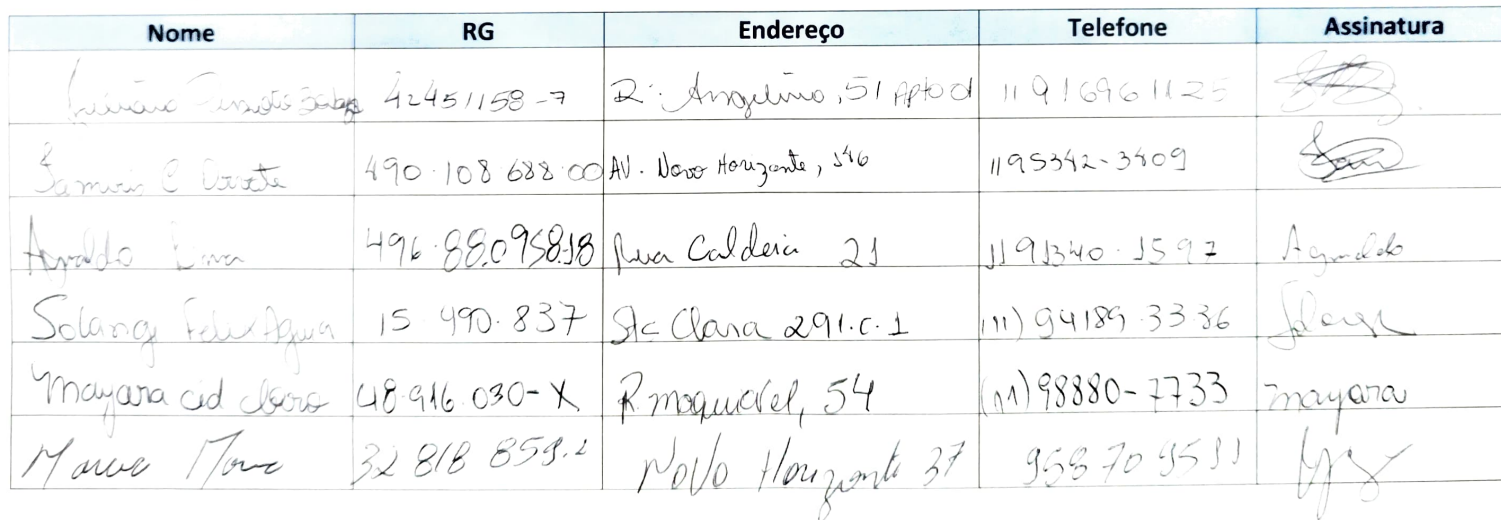 Nome RG Endereço Telefone Assinatura
42451158-7 R. Angelino, 51 Apto 01 11 916961125
490.108.688.00 AV. Novo Horizonte, 546 1195342-3409
Agnaldo Lima 496.88.095818 Rua Caldeia 21 11 91340.1597 Agnaldo
Solange Felix 15.490.837 Sta Clara 291.c.1 (11) 94189.3336 Solange
Mayara cid claro 48.916.030-X R. maquiavel, 54 (11) 98880-7733 mayara
32 818 859.2 Novo Horizonte 37 958 70 9511